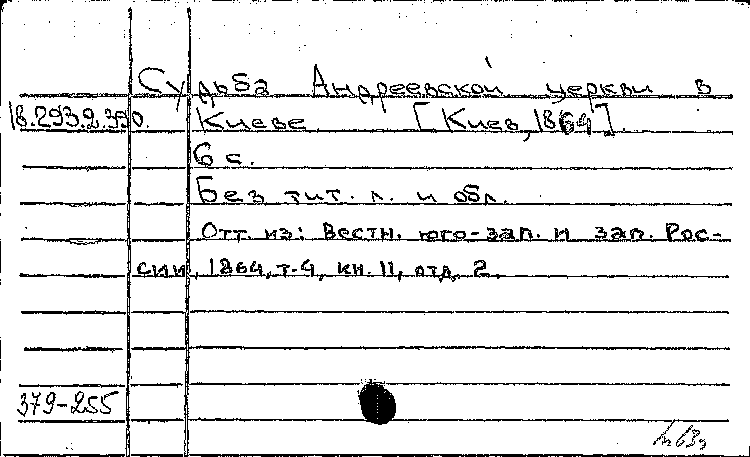 Судьба Андреевской церкви в
18.293.2.390. Киеве [Киев, 1864].
6 с.
Без тит. л. и обл.
Отт. из: Вестн. юго-зап. и зап. Рос-
сии, 1864, т.4, кн. 11, отд. 2.
379-255